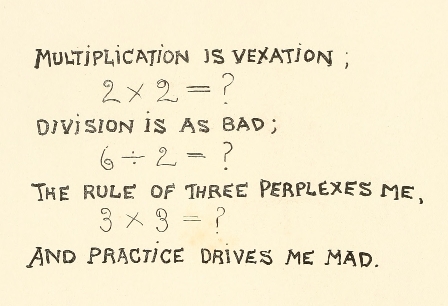 MULTIPLICATION IS VEXATION;
2 × 2 = ?
DIVISION IS AS BAD;
6 ÷ 2 = ?
THE RULE OF THREE PERPLEXES ME,
3 × 3 = ?
AND PRACTICE DRIVES ME MAD.